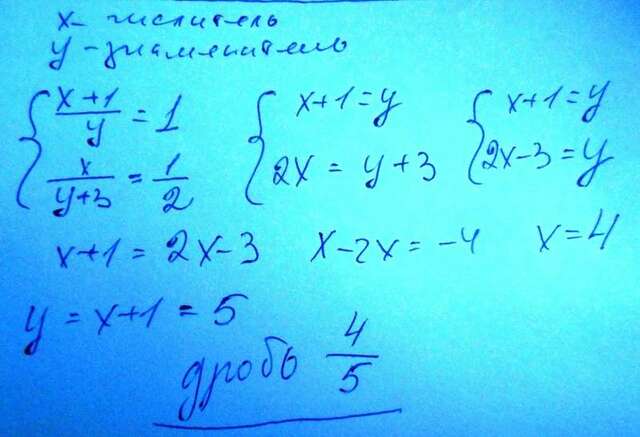 x - числитель
y - знаменитель
{ (x+1)/y = 1 { x+1 = y { x+1 = y
{ x/(y+3) = 1/2 { 2x = y+3 { 2x-3 = y
x+1 = 2x-3 x-2x = -4 x=4
y = x+1 = 5
дробь 4/5